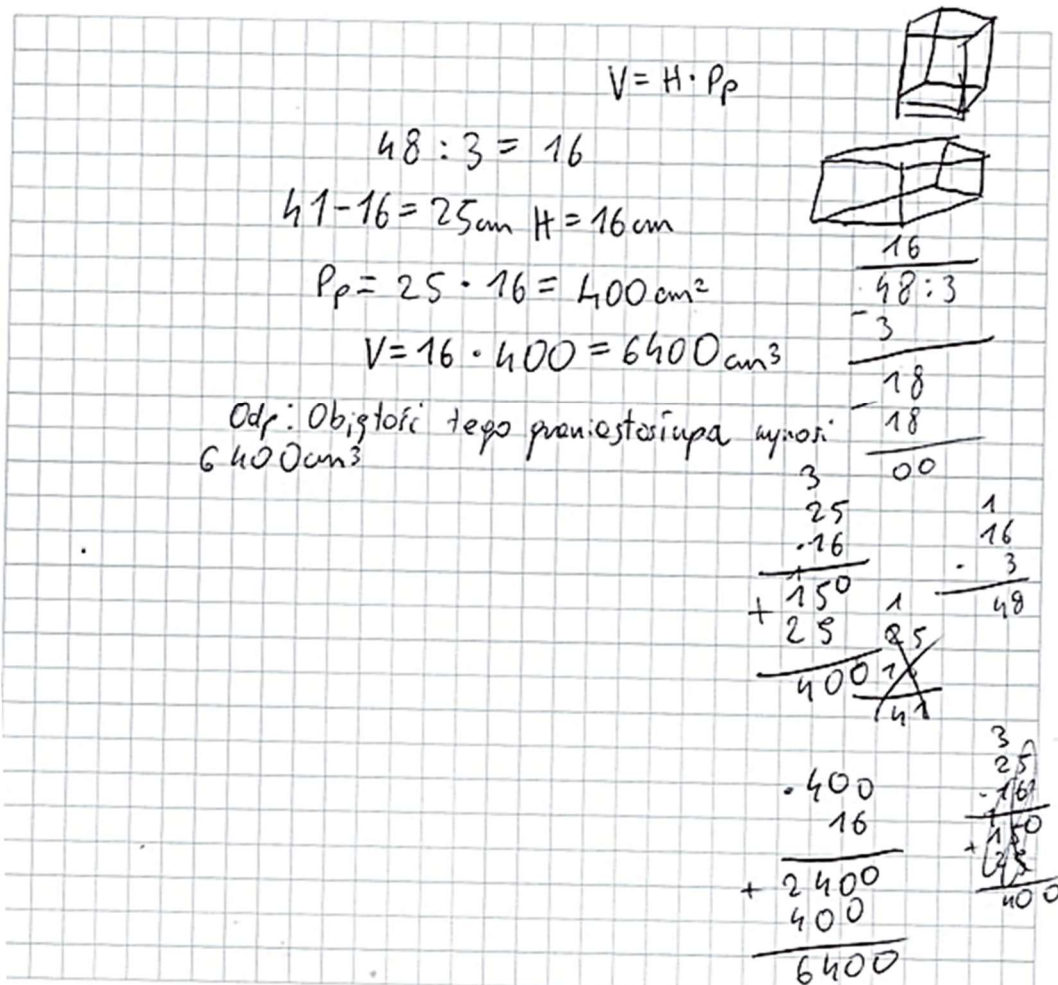 V = H · Pp
48 : 3 = 16
41 - 16 = 25 cm H = 16 cm
Pp = 25 · 16 = 400 cm²
V = 16 · 400 = 6400 cm³
Odp: Objętość tego graniastosłupa wynosi
6400 cm³
16
48 : 3
- 3
18
- 18
00
3
25
· 16
1
150
+ 25
400
1
16
· 3
48
1
25
16
41
· 400
16
2400
+ 400
6400
3
25
· 16
1
150
+ 25
400